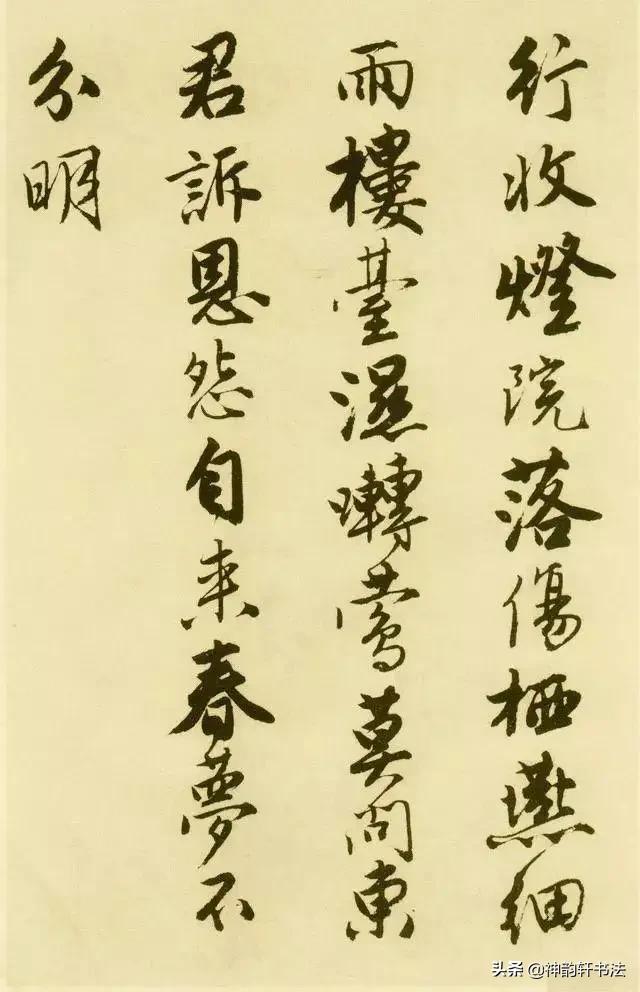 行收燈院落傷栖燕細
雨樓臺濕囀鶯莫問東
君訴恩怨自来春夢不
分明
头条 @神韵轩书法